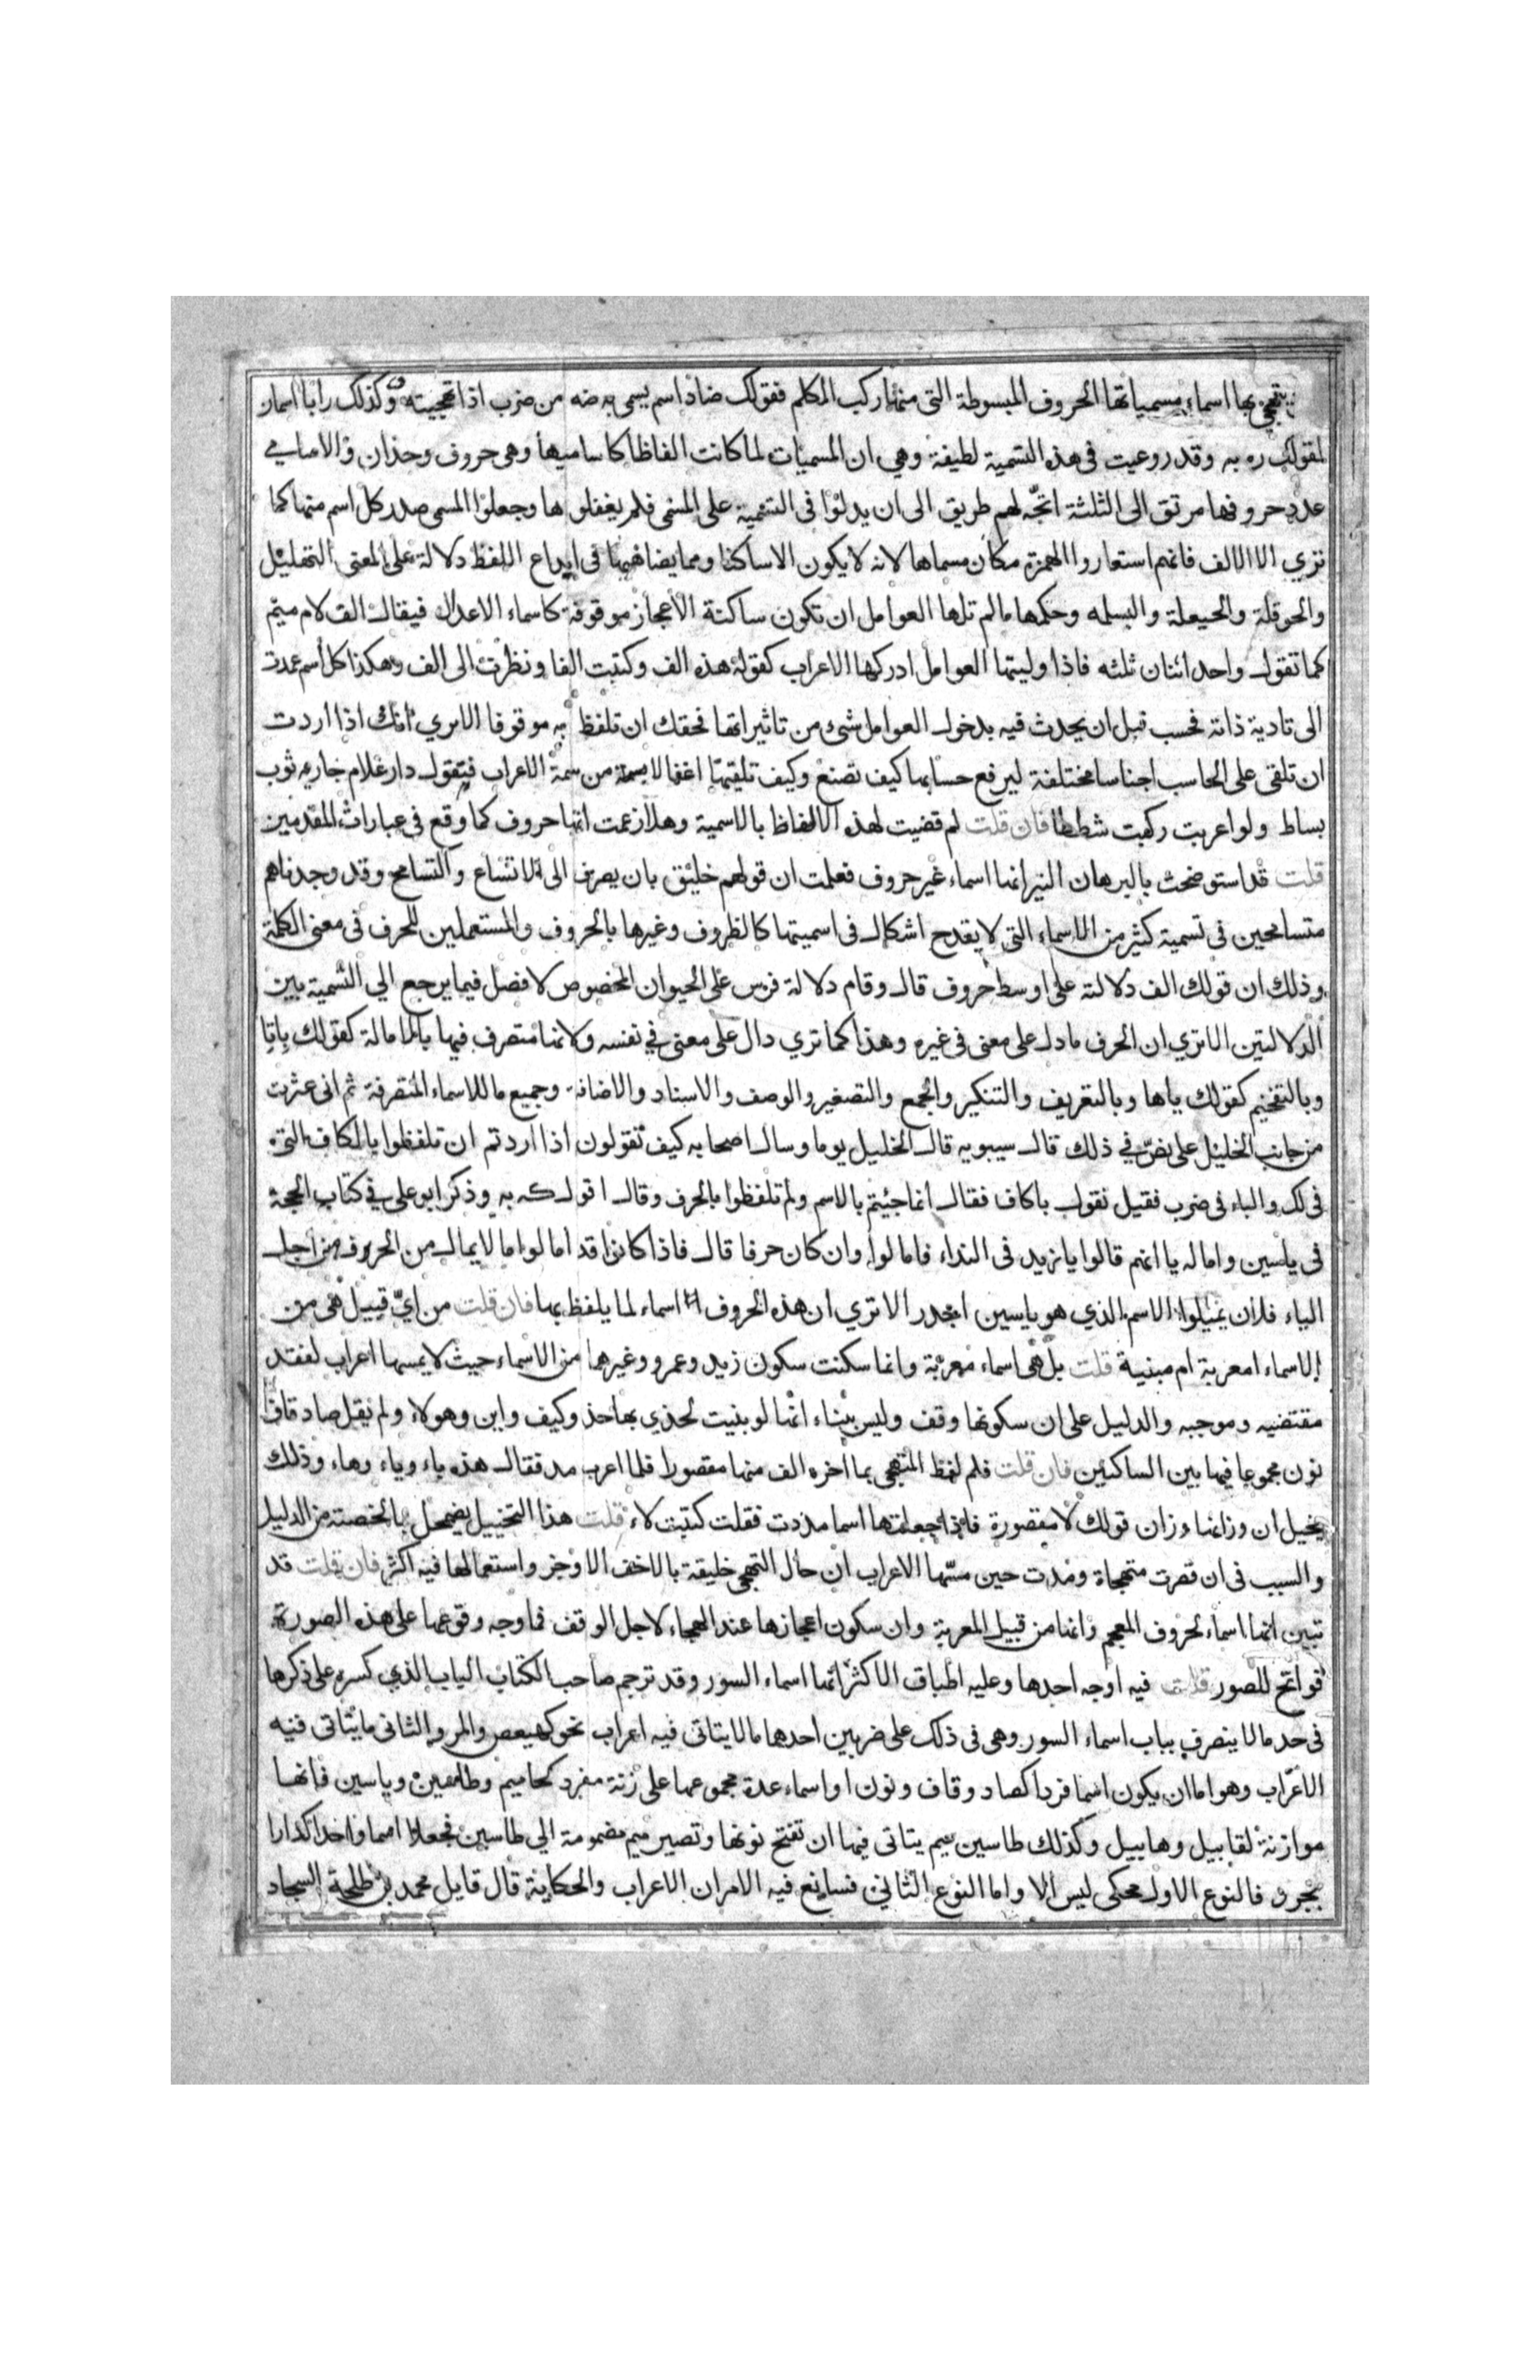 يتهجى بها اسماء مسمياتها الحروف المبسوطة التى منها ركب الكلم فقولك ضاد اسم يسمى به ضه من ضرب اذا تهجيته وكذلك را با اسمان
لقولك ره به وقد روعيت فى هذه التسمية لطيفة وهي ان المسميات لما كانت الفاظا كاساميها وهى حروف وحدان والاسامي
عدد حروفها مرتق الى الثلثة اتجه لهم طريق الى ان يدلوا فى التسمية على المسمى فلم يغفلوها وجعلوا المسمى صدر كل اسم منها كما
تري الا الالف فانهم استعاروا الهمزة مكان مسماها لانه لا يكون الا ساكنا ومما يضاهيها فى ايداع اللفظ دلالة على المعنى التهليل
والحوقلة والحيعلة والبسمله وحكمها مالم تلها العوامل ان تكون ساكنة الاعجاز موقوفة كاسماء الاعداد فيقال الف لام ميم
كما تقول واحد اثنان ثلثه فاذا وليتها العوامل ادركها الاعراب كقولك هذه الف وكتبت الفا ونظرت الى الف وهكذا كل اسم عمدت
الى تادية ذاته فحسب قبل ان يحدث فيه بدخول العوامل شئ من تاثيراتها فحقك ان تلفظ به موقوفا الا تري انك اذا اردت
ان تلقى على الحاسب اجناسا مختلفة ليرفع حسابها كيف تصنع وكيف تلقيها اغفالا من سمة الاعراب فتقول دار غلام جاريه ثوب
بساط ولو اعربت ركبت شططا فان قلت لم قضيت لهذه الالفاظ بالاسمية وهلا زعمت انها حروف كما وقع فى عبارات المتقدمين
قلت قد استوضحت بالبرهان النير انها اسماء غير حروف فعلمت ان قولهم خليق بان يصرف الى الاتساع والتسامح وقد وجدناهم
متسامحين فى تسمية كثير من الاسماء التى لا يقدح اشكال فى اسميتها كالظروف وغيرها بالحروف والمستعملين للحرف فى معنى الكلمة
وذلك ان قولك الف دلالته على اوسط حروف قال وقام دلالة فرس على الحيوان المخصوص لا فضل فيما يرجع الي التسمية بين
الدلالتين الا تري ان الحرف ما دل على معنى فى غيره وهذا كما تري دال على معنى في نفسه ولانها متصرف فيها بالامالة كقولك باتا
وبالتفخيم كقولك ياها وبالتعريف والتنكير والجمع والتصغير والوصف والاسناد والاضافة وجميع ما للاسماء المتصرفة ثم انى عثرت
من جانب الخليل على نص في ذلك قال سيبويه قال الخليل يوما وسال اصحابه كيف تقولون اذا اردتم ان تلفظوا بالكاف التى
فى لك والباء فى ضرب فقيل نقول با كاف فقال انما جئتم بالاسم ولم تلفظوا بالحرف وقال اقول كه به وذكر ابو على في كتاب الحجة
فى ياسين وامالة يا انهم قالوا يا زيد فى النداء فامالوا وان كان حرفا قال فاذا كانوا قد امالوا ما لا يمال من الحروف من اجل
الياء فلان يميلوا الاسم الذي هو ياسين اجدر الا تري ان هذه الحروف اسماء لما يلفظ بها فان قلت من اي قبيل هى من
الاسماء امعربة ام مبنية قلت بل هى اسماء معربة وانما سكنت سكون زيد وعمرو وغيرهما من الاسماء حيث لا يمسها اعراب لفقد
مقتضيه وموجبه والدليل على ان سكونها وقف وليس ببناء انها لو بنيت لحذي بها حذو كيف واين وهولاء ولم يقل صاد قاف
نون مجموعا فيها بين الساكنين فان قلت فلم لفظ المتهجى بما اخره الف منها مقصورا فلما اعرب مد فقال هذه باء وياء وهاء وذلك
يخيل ان وزانها وزان قولك لا مقصورة فاذا جعلتها اسما مددت فقلت كتبت لاء قلت هذا التخييل يضمحل بما لخصته من الدليل
والسبب فى ان قصرت متهجاة ومدت حين مسها الاعراب ان حال التهجى خليقة بالاخف الاوجز واستعمالها فيه اكثر فان قلت قد
تبين انها اسماء لحروف المعجم وانها من قبيل المعربة وان سكون اعجازها عند الهجاء لاجل الوقف فما وجه وقوعها على هذه الصورة
فواتح للصور قلت فيه اوجه احدها وعليه اطباق الاكثر انها اسماء السور وقد ترجم صاحب الكتاب الباب الذي كسره على ذكرها
فى حد ما لا ينصرف بباب اسماء السور وهى فى ذلك على ضربين احدها مالا يتاتى فيه اعراب نحو كهيعص والمر والثانى ما يتاتى فيه
الاعراب وهو اما ان يكون اسما فردا كصاد وقاف ونون او اسماء عدة مجموعها على زنة مفرد كحاميم وطاسين وياسين فانها
موازنة لقابيل وهابيل وكذلك طاسين ميم يتاتى فيها ان تفتح نونها وتصير ميم مضمومة الي طاسين فجعلا اسما واحدا كدارا
بجرد فالنوع الاول محكى ليس الا واما النوع الثانى فسايغ فيه الامران الاعراب والحكاية قال قايل محمد بن طلحة السجاد